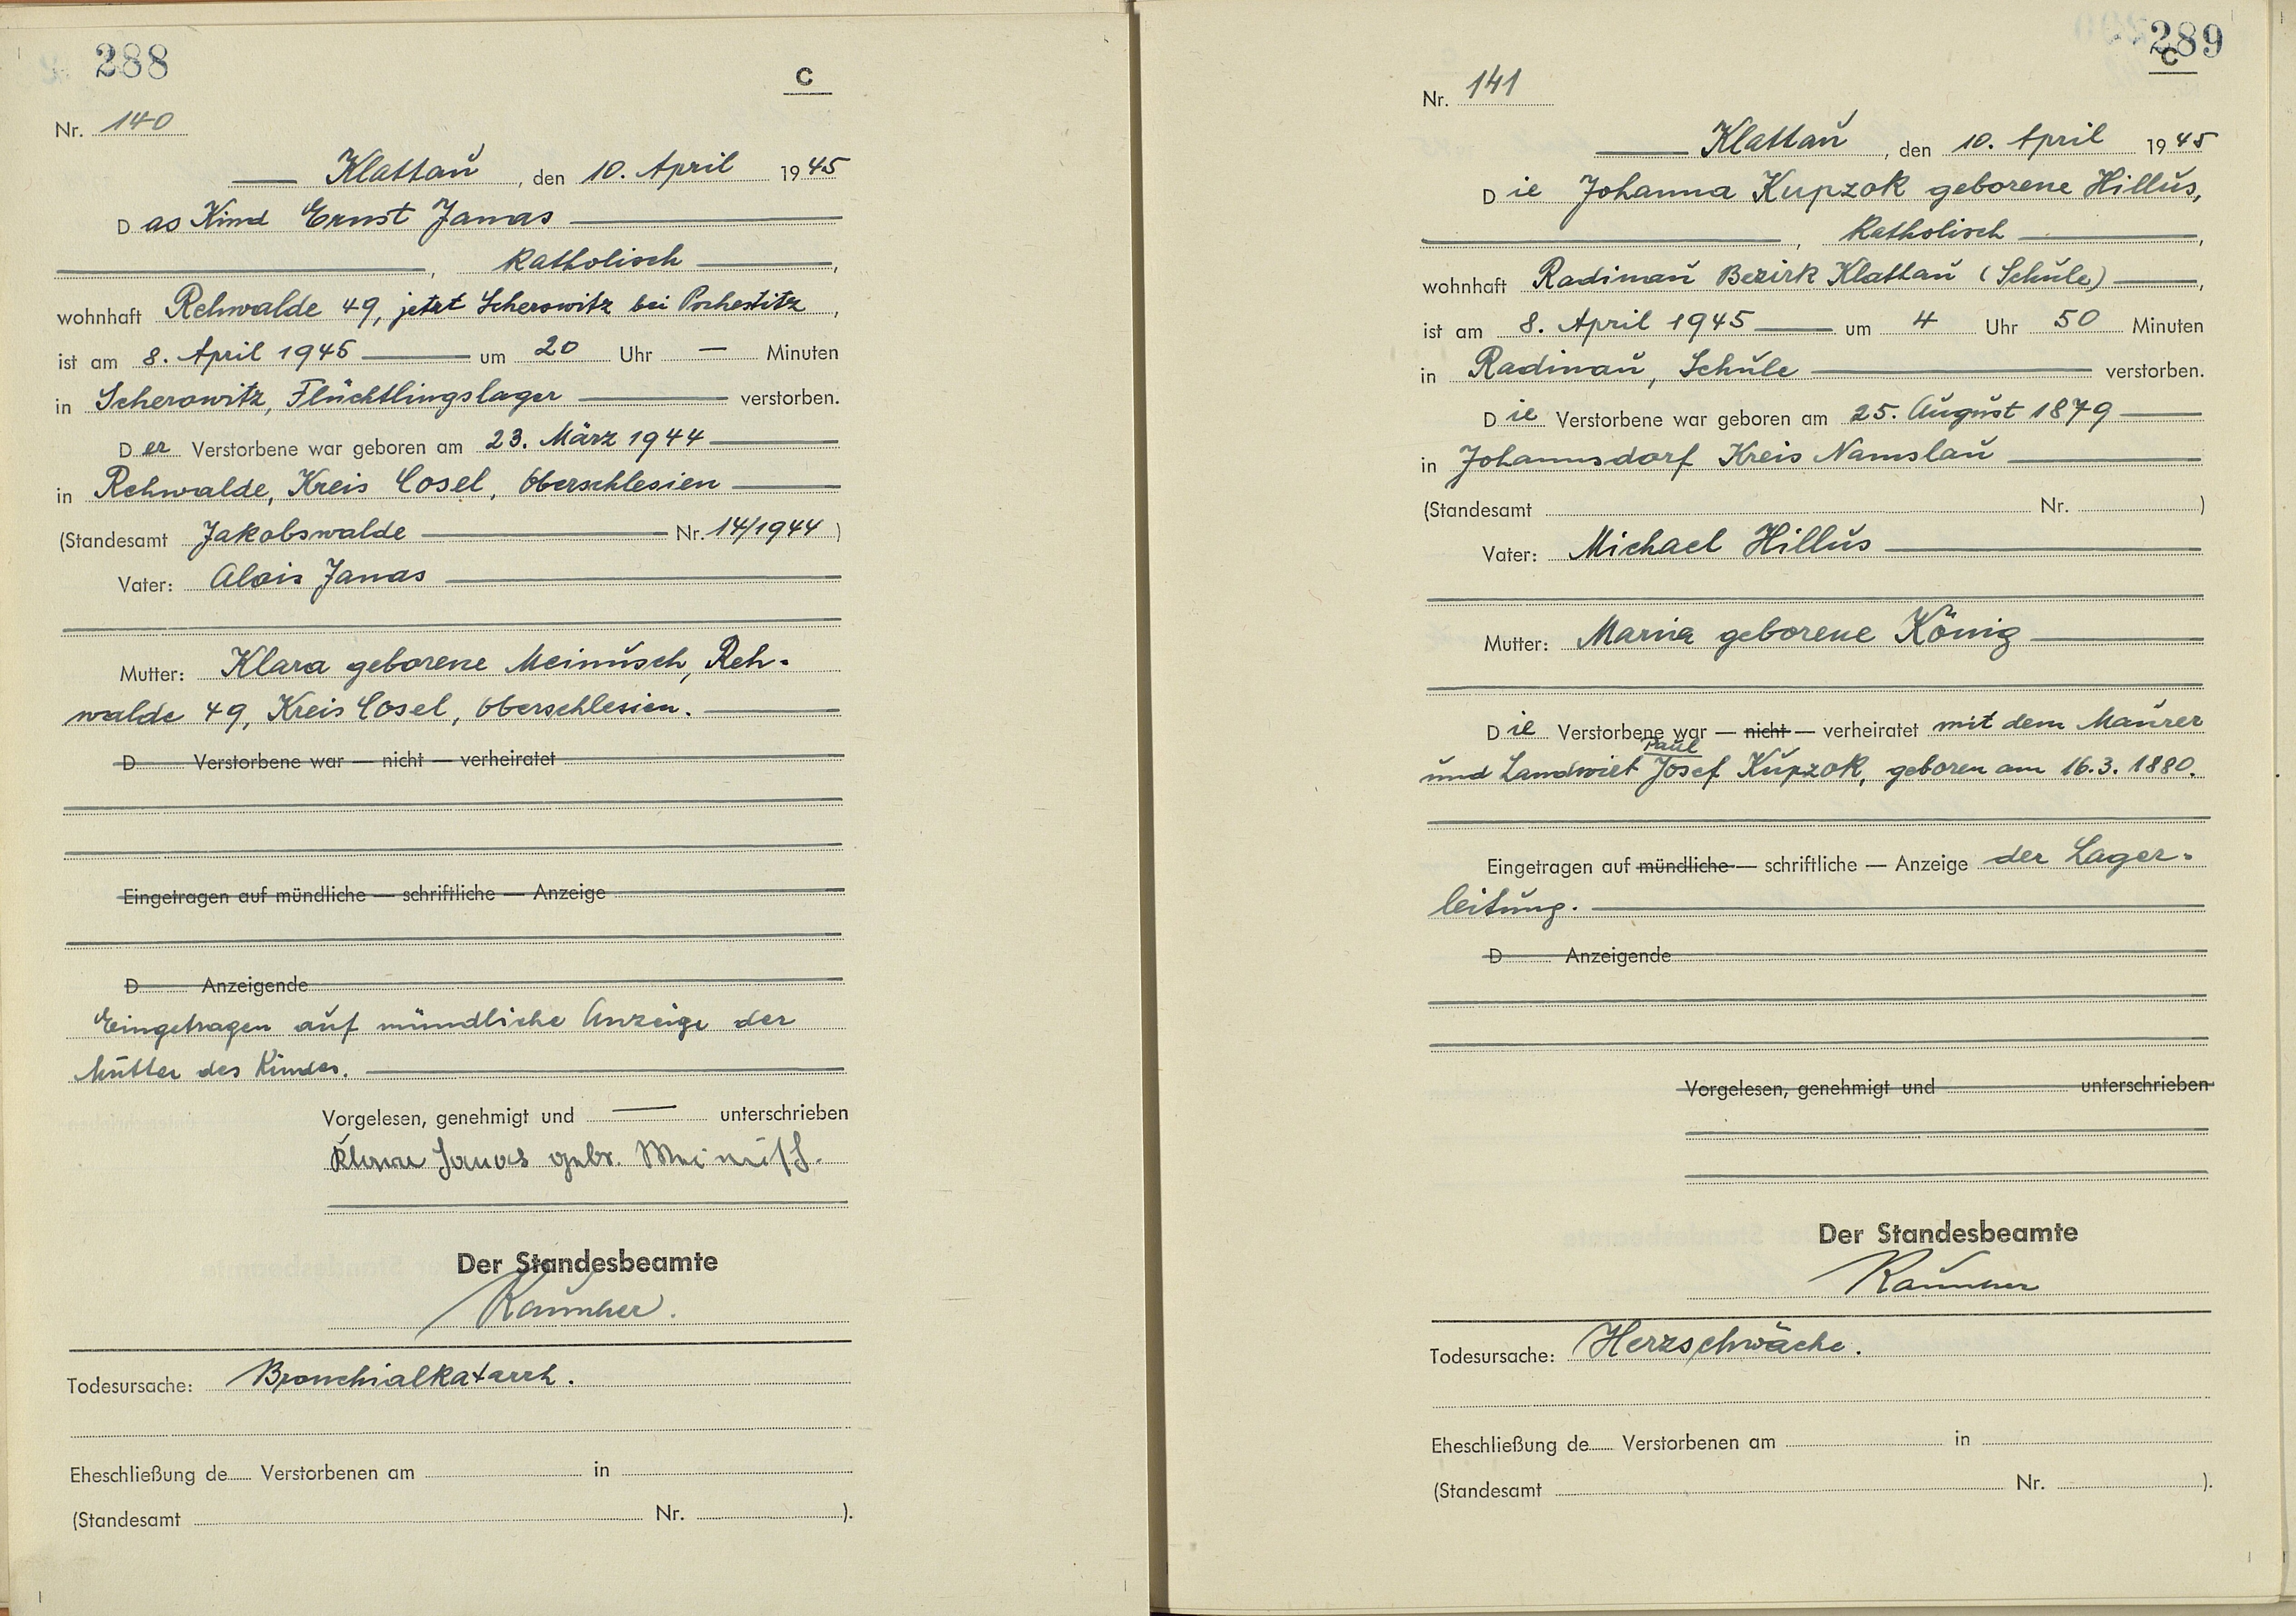 288
C
Nr. 140
Klattau, den 10. April 1945
Das Kind Ernst Janas
, Katholisch,
wohnhaft Rehwalde 49, jetzt Scherowitz bei Pschestitz,
ist am 8. April 1945 um 20 Uhr — Minuten
in Scherowitz, Flüchtlingslager verstorben.
Der Verstorbene war geboren am 23. März 1944
in Rehwalde, Kreis Cosel, Oberschlesien
(Standesamt Jakobswalde Nr. 14/1944)
Vater: Alois Janas
Mutter: Klara geborene Meinusch, Reh-
walde 49, Kreis Cosel, Oberschlesien.
D Verstorbene war — nicht — verheiratet
Eingetragen auf mündliche — schriftliche — Anzeige
D Anzeigende
Eingetragen auf mündliche Anzeige der
Mutter des Kindes.
Vorgelesen, genehmigt und — unterschrieben
Klara Janas gebr. Meinusch.
Der Standesbeamte
Todesursache: Bronchialkatarrh.
Eheschließung de Verstorbenen am in
(Standesamt Nr. ).
289
C
Nr. 141
Klattau, den 10. April 1945
Die Johanna Kupzok geborene Hillus,
, Katholisch,
wohnhaft Radinau Bezirk Klattau (Schule),
ist am 8. April 1945 um 4 Uhr 50 Minuten
in Radinau, Schule verstorben.
Die Verstorbene war geboren am 25. August 1879
in Johannsdorf Kreis Namslau
(Standesamt Nr. )
Vater: Michael Hillus
Mutter: Maria geborene König
Die Verstorbene war — nicht — verheiratet mit dem Maurer
Paul
und Landwirt Josef Kupzok, geboren am 16.3.1880.
Eingetragen auf mündliche — schriftliche — Anzeige der Lager-
leitung.
D Anzeigende
Vorgelesen, genehmigt und unterschrieben
Der Standesbeamte
Todesursache: Herzschwäche.
Eheschließung de Verstorbenen am in
(Standesamt Nr. ).